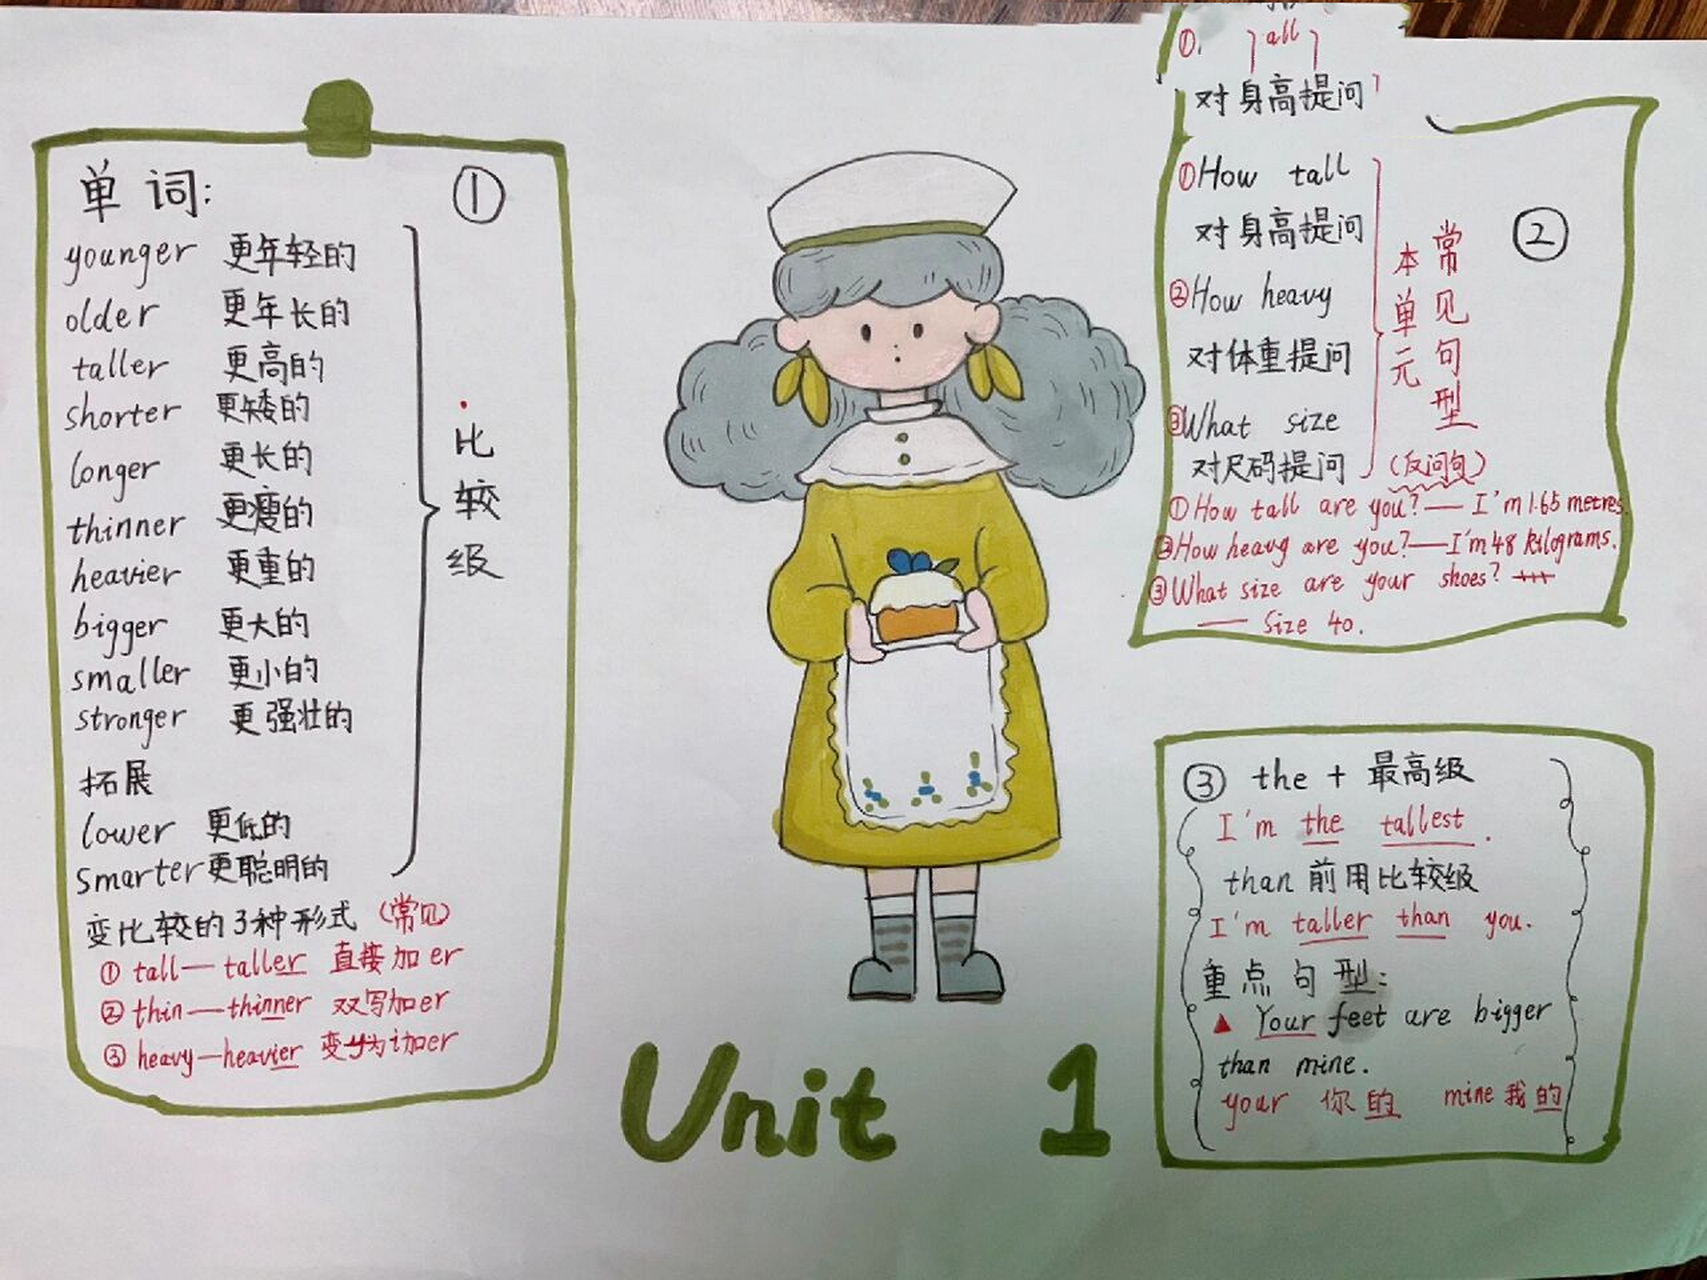 单词: ①
younger 更年轻的
older 更年长的
taller 更高的
shorter 更矮的
longer 更长的
thinner 更瘦的
heavier 更重的
bigger 更大的
smaller 更小的
stronger 更强壮的
拓展
lower 更低的
smarter 更聪明的
比较级
变比较的3种形式 (常见)
① tall—taller 直接加er
② thin—thinner 双写加er
③ heavy—heavier 变y为i加er
Unit 1
①. all
对身高提问
①How tall
对身高提问
②How heavy
对体重提问
③What size
对尺码提问
本单元
常见句型
②
(反问句)
①How tall are you?— I'm 1.65 metres.
②How heavy are you?—I'm 48 kilograms.
③What size are your shoes?
— Size 40.
③ the + 最高级
I'm the tallest.
than 前用比较级
I'm taller than you.
重点句型:
▲ Your feet are bigger
than mine.
your 你的 mine 我的